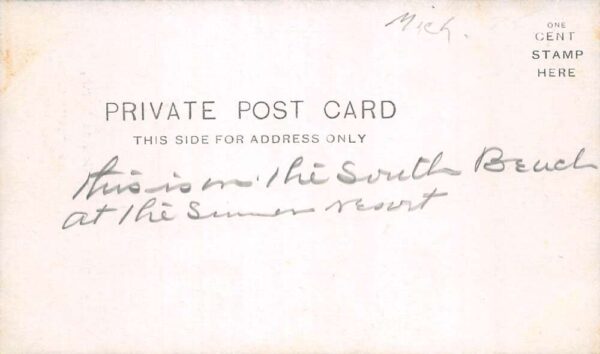 Mich.
ONE
CENT
STAMP
HERE
PRIVATE POST CARD
THIS SIDE FOR ADDRESS ONLY
this is on the South Beach
at the Summer resort